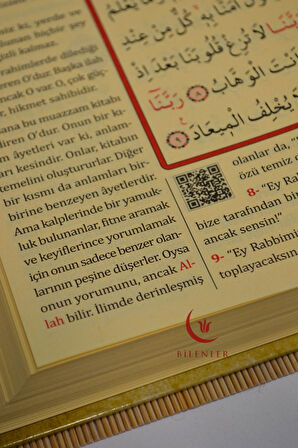 ki, yerde ve
bulunan hiçbir şey
gizli kalmaz.
rahimlerde dilediği
ren O'dur. Başka ilah
ncak O var. O, çok güç-
, hikmet sahibidir.
ana bu muazzam kitabı
diren O'dur. Onun bir kı-
m âyetleri var ki, anlam-
arı kesindir. Onlar, kitabın
temelini oluştururlar. Diğer
bir kısmı da anlamları bir-
birine benzeyen âyetlerdir.
Ama kalplerinde bir yamuk-
luk bulunanlar, fitne aramak
ve keyiflerince yorumlamak
için onun sadece benzer olan-
larının peşine düşerler. Oysa
onun yorumunu, ancak Al-
lah bilir. İlimde derinleşmiş
اٰمَنَّا بِهٖ كُلٌّ مِنْ عِنْدِ
لَا تُزِغْ قُلُوبَنَا بَعْدَ اِذْ
اَنْتَ الْوَهَّابُ ﴿٨﴾ رَبَّنَٓا
يُخْلِفُ الْمِيعَادَ ﴿٩﴾
olanlar da, "
özü temiz
8- "Ey R
bize tarafından bi
ancak sensin!"
9- "Ey Rabbimi
toplayacaksın
BİLENLER